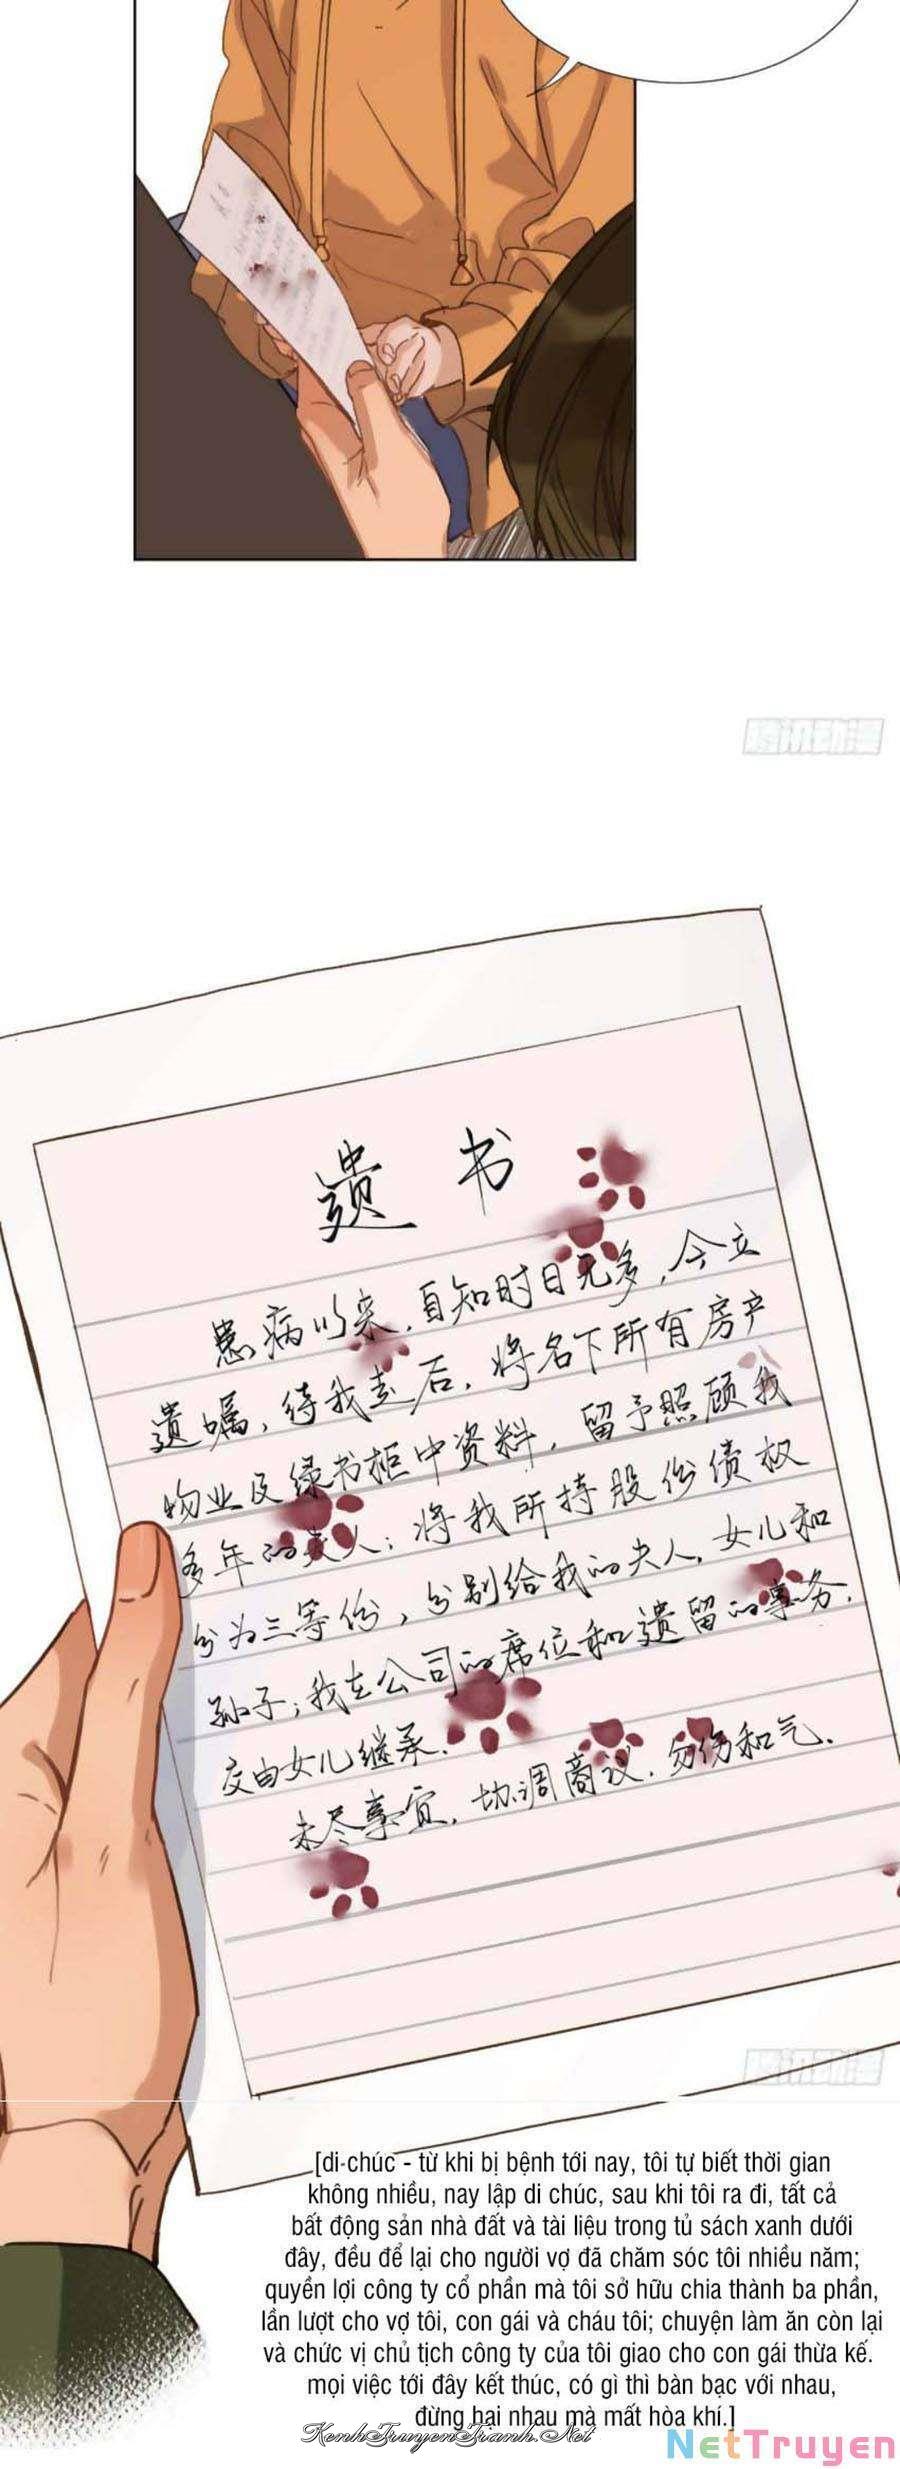 遗书
患病以来，自知时日无多，今立
遗嘱，待我走后，将名下所有房产
物业及绿书柜中资料，留予照顾我
多年的夫人；将我所持股份债权
分为三等份，分别给我的夫人，女儿和
孙子；我在公司的席位和遗留的事务，
交由女儿继承。
未尽事宜，协调商议，勿伤和气。
[di-chúc - từ khi bị bệnh tới nay, tôi tự biết thời gian
không nhiều, nay lập di chúc, sau khi tôi ra đi, tất cả
bất động sản nhà đất và tài liệu trong tủ sách xanh dưới
đây, đều để lại cho người vợ đã chăm sóc tôi nhiều năm;
quyền lợi công ty cổ phần mà tôi sở hữu chia thành ba phần,
lần lượt cho vợ tôi, con gái và cháu tôi; chuyện làm ăn còn lại
và chức vị chủ tịch công ty của tôi giao cho con gái thừa kế.
mọi việc tới đây kết thúc, có gì thì bàn bạc với nhau,
đừng hại nhau mà mất hòa khí.]
KenhTruyenTranh.Net
NetTruyen